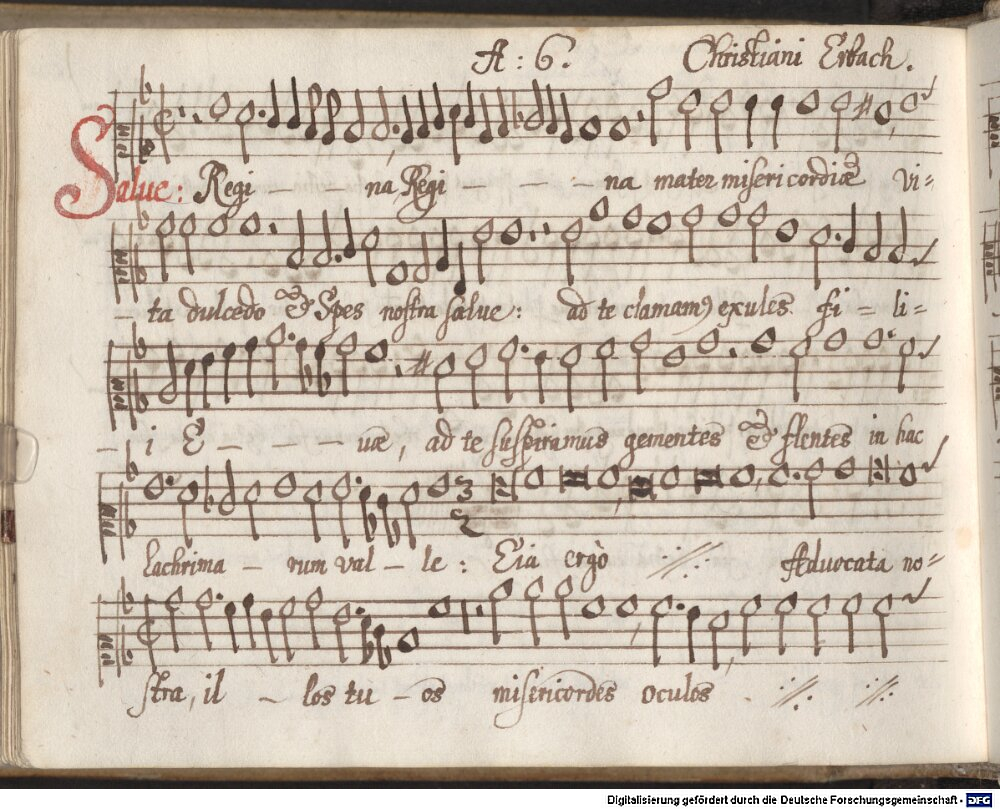 A : 6. Christiani Erbach.
Salue : Regi - - na Regi - - - - na mater misericordiæ Vi=
- ta dulcedo & Spes nostra salue : ad te clamam9 exules fi = li=
- i E - - - uæ, ad te suspiramus gementes & flentes in hac
lachrima - rum val - le : Eia ergò ·//· Aduocata no=
stra, il - los tu - os misericordes oculos ·//· ·//·
Digitalisierung gefördert durch die Deutsche Forschungsgemeinschaft - DFG